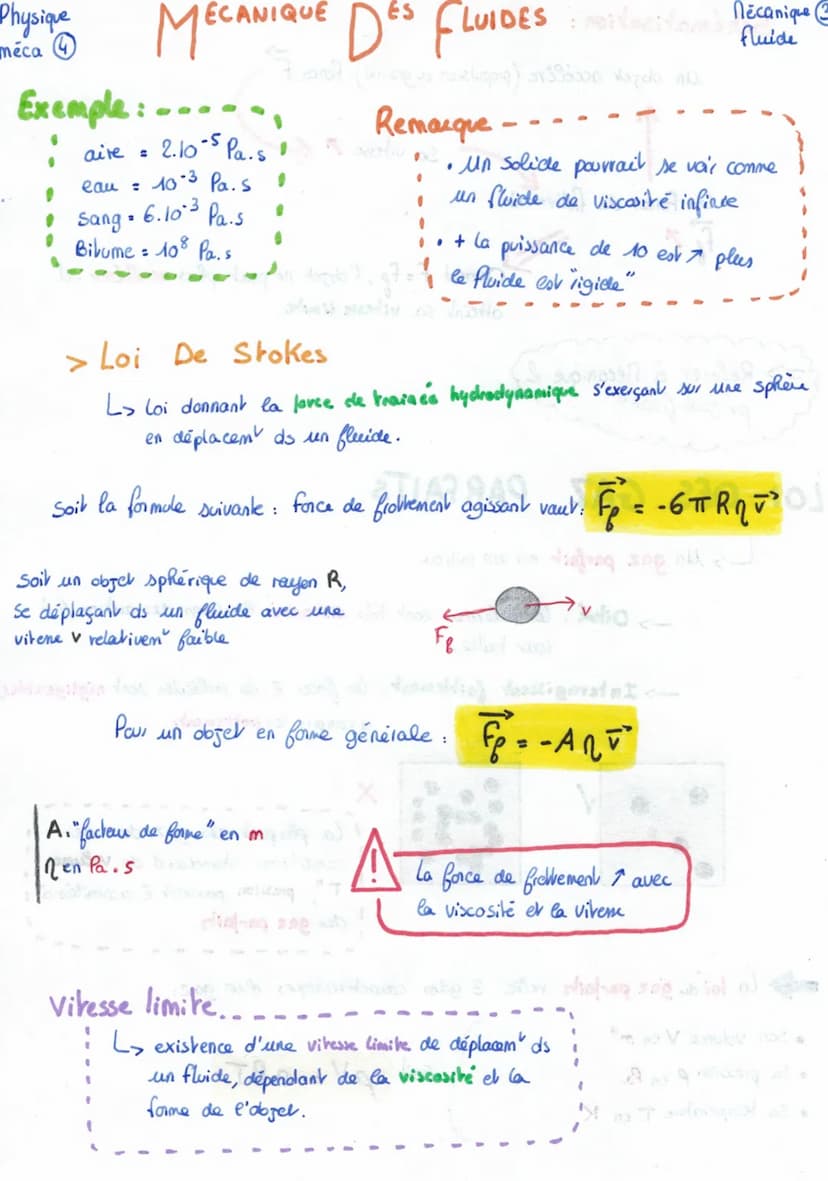 Physique
méca ④
MÉCANIQUE DES FLUIDES
Mécanique
fluide
Exemple :
aire = 2.10⁻⁵ Pa.s
eau = 10⁻³ Pa.s
Sang = 6.10⁻³ Pa.s
Bitume = 10⁸ Pa.s
Remarque
• Un solide pourrait se voir comme
un fluide de viscosité infinie
• + la puissance de 10 est ↗ plus
le fluide est "rigide"
> Loi De Stokes
↳ Loi donnant la force de trainée hydrodynamique s'exerçant sur une sphère
en déplacemᵗ ds un fluide.
Soit la formule suivante : force de frottement agissant vaut : F⃗f = -6πRηv⃗
Soit un objet sphérique de rayon R,
se déplaçant ds un fluide avec une
vitesse v relativemᵗ faible
Ff
v
Pour un objet en forme générale : F⃗f = -Aηv⃗
A : "facteur de forme" en m
η en Pa.s
! La force de frottement ↗ avec
la viscosité et la vitesse
Vitesse limite
↳ existence d'une vitesse limite de déplacemᵗ ds
un fluide, dépendant de la viscosité et la
forme de l'objet.